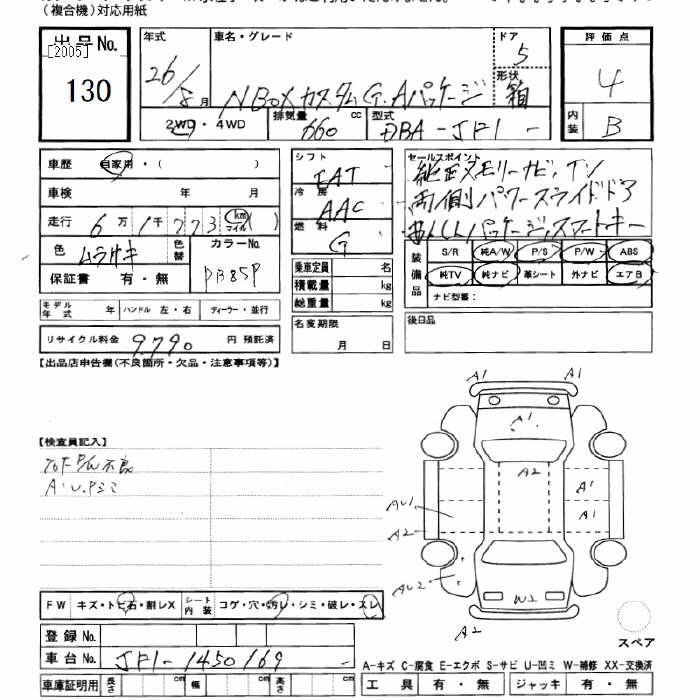 (複合機)対応用紙
出品No.
[2005]
130
年式
26/8月
車名・グレード
N BOXカスタムG.Aパッケージ
ドア
5
形状
箱
2WD・4WD
排気量
660 cc
型式
DBA-JF1-
評価点
4
内装
B
車歴 自家用・( )
車検 年 月
走行 6万1千773 km マイル ( )
色 ムラサキ 色替 カラーNo. PB85P
保証書 有・無
モデル年式 年 ハンドル 左・右 ディーラー・並行
リサイクル料金 9.790 円 預託済
シフト
FAT
冷房
AAC
燃料
G
乗車定員 名
積載量 kg
総重量 kg
名変期限
月 日
セールスポイント
純正メモリーナビ,TV
両側パワースライドドア
あんしんパッケージ,スマートキー
装備品
S/R 純A/W P/S P/W ABS
純TV 純ナビ 革シート 外ナビ エアB
ナビ型番:
後日品
【出品店申告欄(不良箇所・欠品・注意事項等)】
【検査員記入】
P/W不良
A'U.Pミミ
FW キズ・トビ石・割レX シート内装 コゲ・穴・汚レ・シミ・破レ・スレ
登録No.
車台No. JF1-1450169
車庫証明用 長さ cm 幅 cm 高さ cm
A1
A1
A1
A2
A1
A1
AU1
A2
AU2
W2
A2
スペア
A-キズ C-腐食 E-エクボ S-サビ U-凹ミ W-補修 XX-交換済
工具 有・無 ジャッキ 有・無